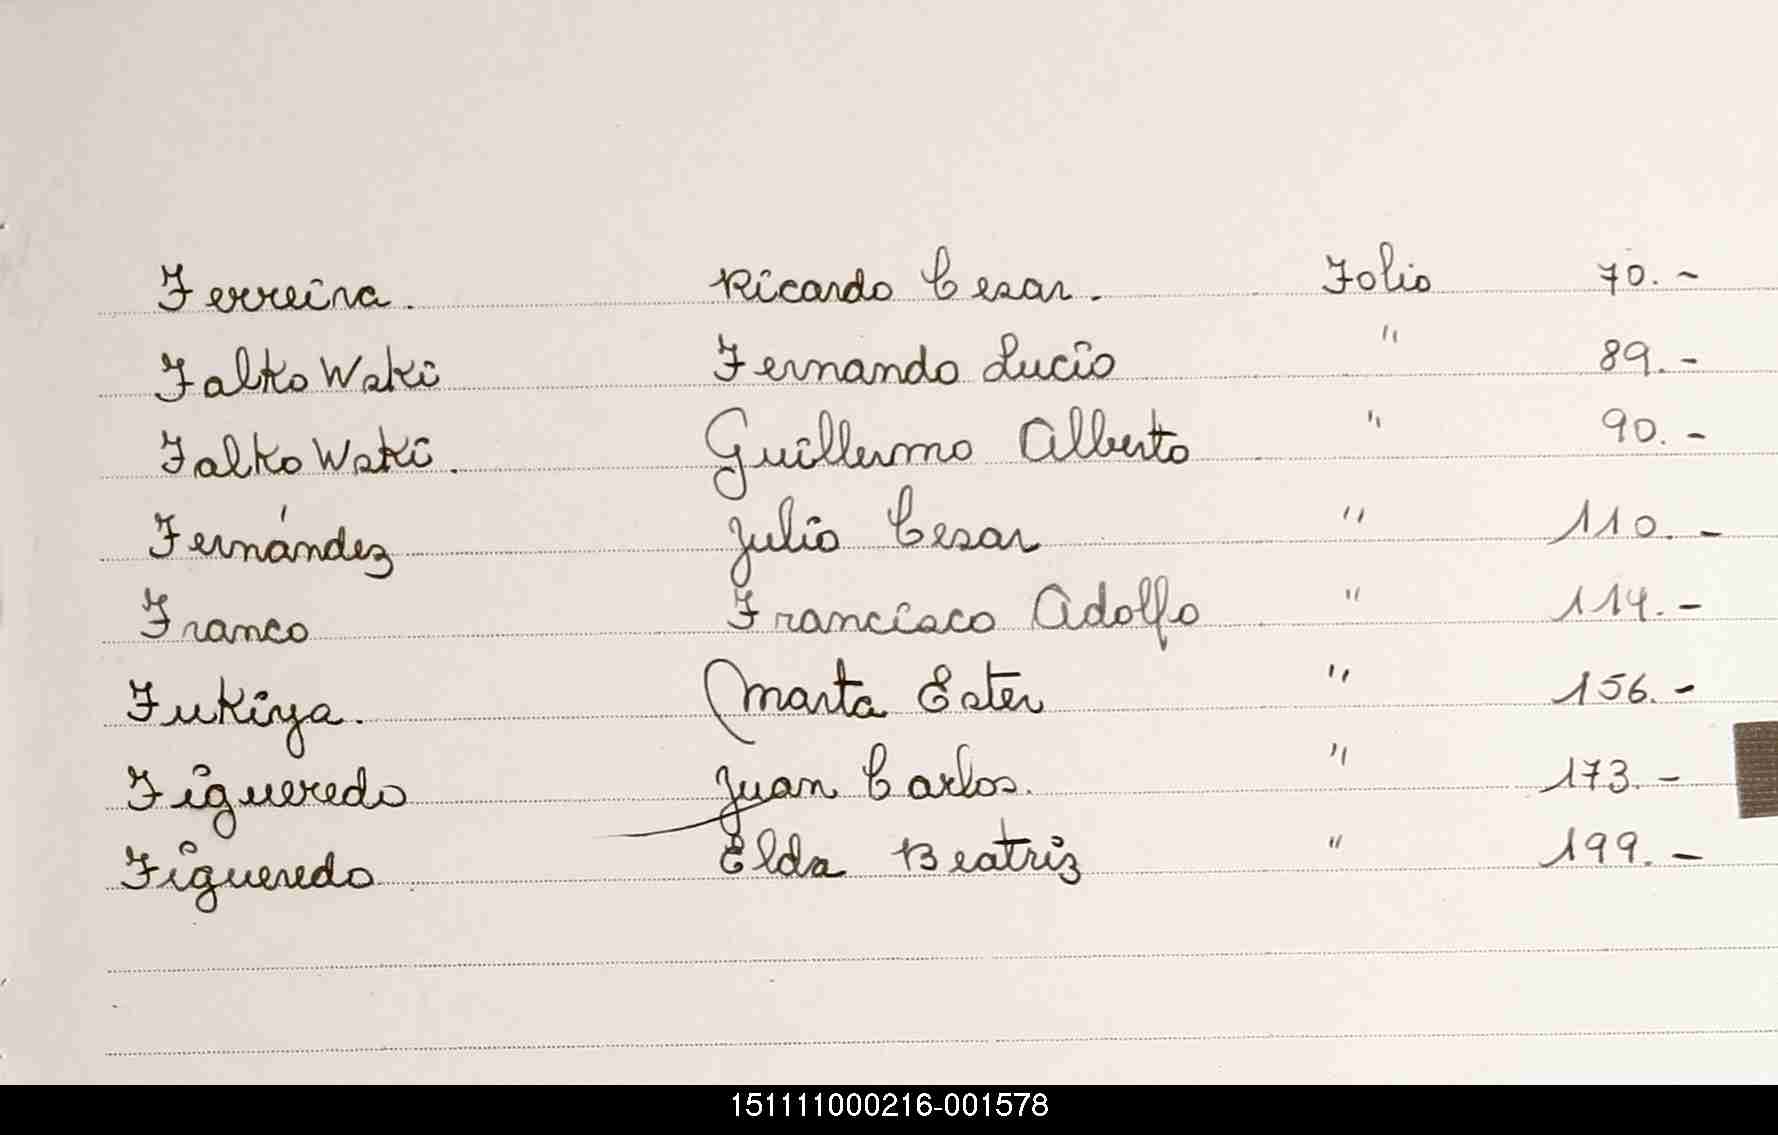 Ferreira. Ricardo Cesar. Folio 70.-
Falkowski Fernando Lucio " 89.-
Falkowski. Guillermo Alberto " 90.-
Fernández Julio Cesar " 110.-
Franco Francisco Adolfo " 114.-
Fukiya. Marta Ester " 156.-
Figueredo Juan Carlos. " 173.-
Figueredo Elda Beatriz " 199.-
151111000216-001578